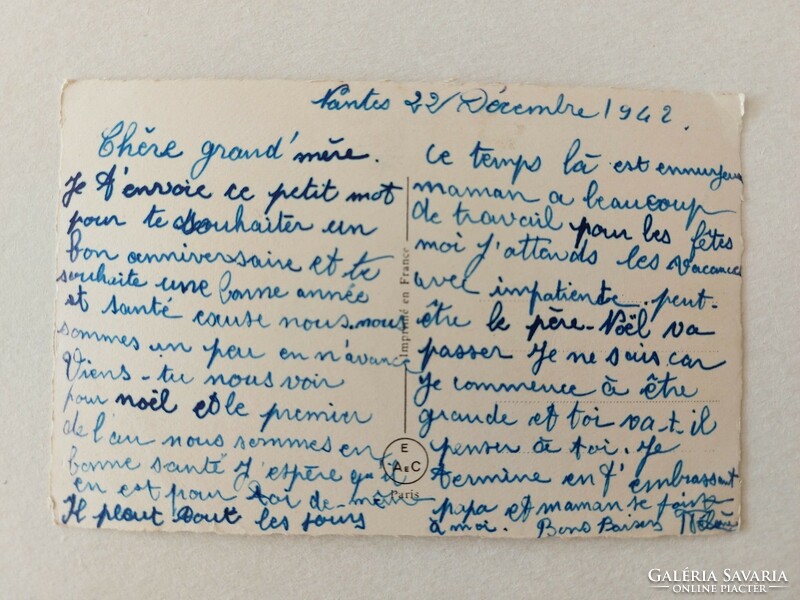 Nantes 22/Décembre 1942.
Chère grand'mère.
Je t'envoie ce petit mot
pour te souhaiter un
bon anniversaire et te
souhaite une bonne année
et santé excuse nous. nous
sommes un peu en n'avance
Viens-tu nous voir
pour noël et le premier
de l'an nous sommes en
bonne santé J'espère qu'il
en est pour toi de-même
Il pleut tout les jours
ce temps là est ennuyeux
maman a beaucoup
de travail pour les fêtes
moi J'attends les vacances
avec impatiente. peut-
être le père-Noël va
passer Je ne sais car
Je commence à être
grande et toi va-t-il
penser à toi. Je
termine en t'embrassant
papa et maman se joints
à moi. Bons Baisers
Imprimé en France
E
A E C
Paris
GALÉRIA SAVARIA
ONLINE PIACTÉR